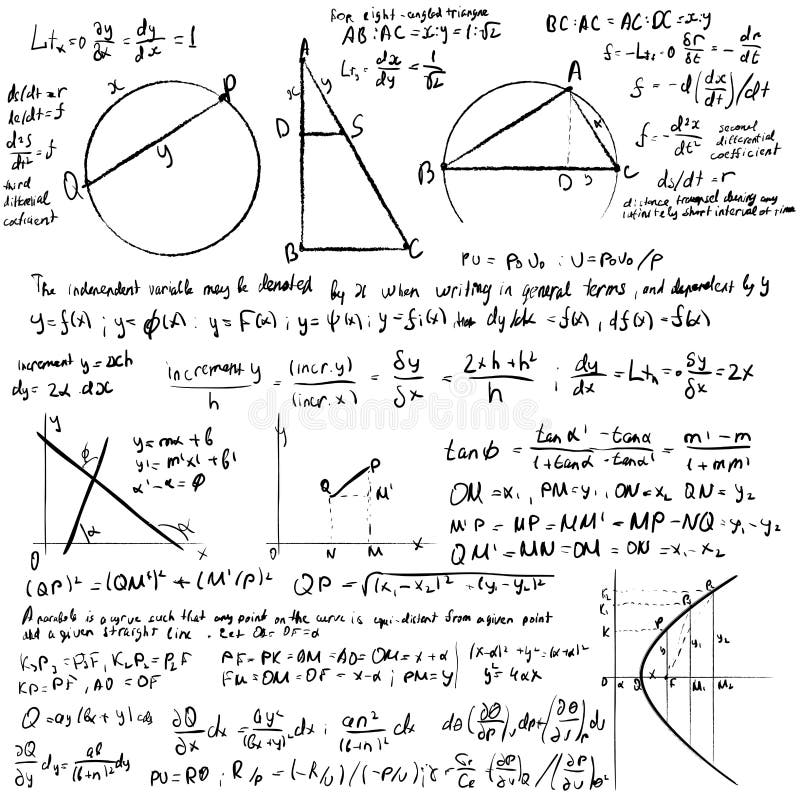 For right-angled triangne
AB:AC = x:y = 1:√2
BC:AC = AC:DC = x:y
Ltₓ=0 ∂y/∂x = dy/dx = 1
dx/dy = 1/√2
f = -Lt₍₌0 δr/δt = - dr/dt
f = -d(dx/dt)/dt
f = - d²x/dt² second differential coefficient
ds/dt = r
infinitely short interval of time
ds/dt = r
de/dt = f
d²s/dt² = f
third differential coefficient
x
P
y
Q
A
x
y
D
S
B
C
A
x
B
D
y
C
PU = P₀U₀ : U = P₀U₀/P
The independent variable may be denoted by x when writing in general terms, and dependent by y
y=f(x) ; y=ϕ(x) : y=F(x) ; y=ψ(x) ; y=fi(x), then dy/dx = f(x), df(x) = f(x)
increment y = xh
dy = 2x . dx
increment y/h = (incr.y)/(incr.x) = δy/δx = 2xh+h²/h ; dy/dx = Ltₕ=0 δy/δx = 2x
y
ϕ
α
α'
0
x
y = mx + b
y' = m'x' + b'
α' - α = ϕ
y
Q
P
M'
0
N
M
x
tanϕ = tanα' - tanα/1+tanα - tanα' = m' - m/1 + mm'
OM = x₁, PM = y₁, ON = x₂ QN = y₂
M'P = MP = MM' = MP - NQ = y₁ - y₂
QM' = MN = OM = ON = x₁ - x₂
(QP)² = (QM')² + (M'P)² QP = √(x₁ - x₂)² - (y₁ - y₂)²
A parabola is a curve such that any point on the curve is equi-distant from a given point
and a given straight line . Let OA = OF = a
K₁P₁ = P₁F, K₂P₂ = P₂F
KP = PF, AO = OF
PF = PK = AM = AO = OM = x + a
FM = OM = OF = x - a ; PM = y
(x-a)² + y² = (x+a)²
y² = 4ax
K₂
K₁
K
P
P₁
P₂
y
y₁
y₂
0
a
x
F
M₁
M₂
Q = ay/(bx + y)
∂Q/∂x dx = ay²/(bx+y)² dx ; an²/(b+n)² dx
dθ(∂θ/∂P)ᵤdp + (∂θ/∂υ)ₚdυ
∂Q/∂y dy = ab/(b+n)² dy
PU = Rθ ; R/P = (-R/υ)/(-P/υ) ; γ =